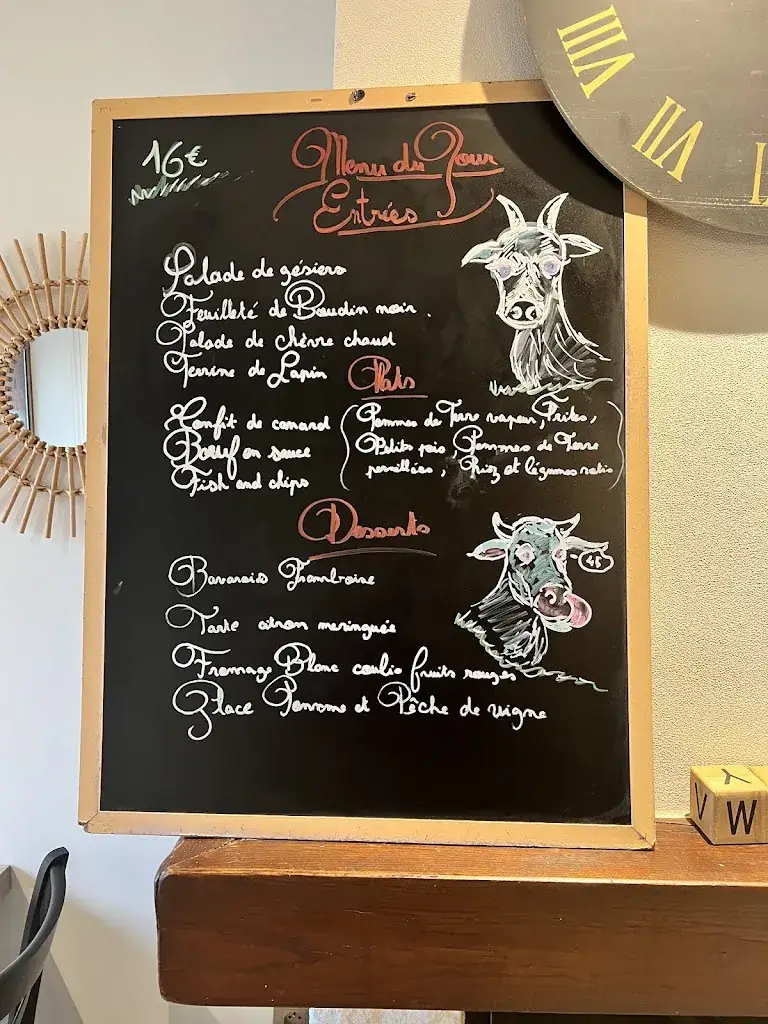 16€
Menu du Jour
Entrées
Salade de gésiers
Feuilleté de Boudin noir.
Salade de chèvre chaud
Terrine de Lapin
Plats
Confit de canard
Boeuf en sauce
Fish and chips
(Pommes de Terre vapeur, Frites,
Petits pois, Pommes de Terre
persillées, Riz et légumes ratio)
Desserts
Bavarois Framboise
Tarte citron meringuée
Fromage Blanc coulis fruits rouges
Glace Pomme et Pêche de vigne
45
VIII
VII
V
Y
W